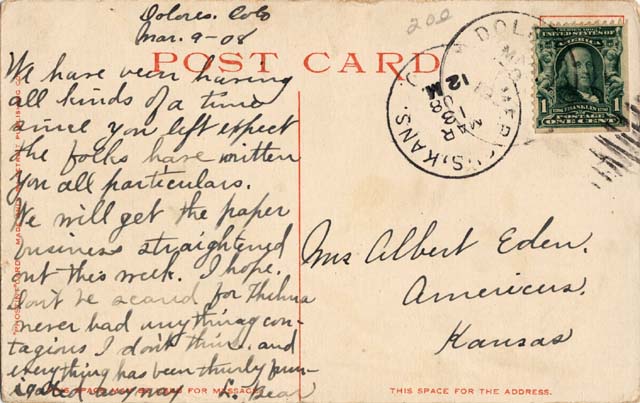 Dolores. Colo
Mar. 9-08
200
POST CARD
We have been having
all kinds of a time
since you left expect
the folks have written
you all particulars.
We will get the paper
business straightened
out this week. I hope.
Don't be scared for Thelma
never had anything con-
tagious I don't think. and
everything has been thurly fum-
igated anyway L. Bear
SPACE FOR MESSAGE
Mrs Albert Eden.
Americus.
Kansas
THIS SPACE FOR THE ADDRESS.
UNITED STATES OF
AMERICA
1 FRANKLIN 1
POSTAGE
ONE CENT
DOLO
KANS.
MAR
12 M